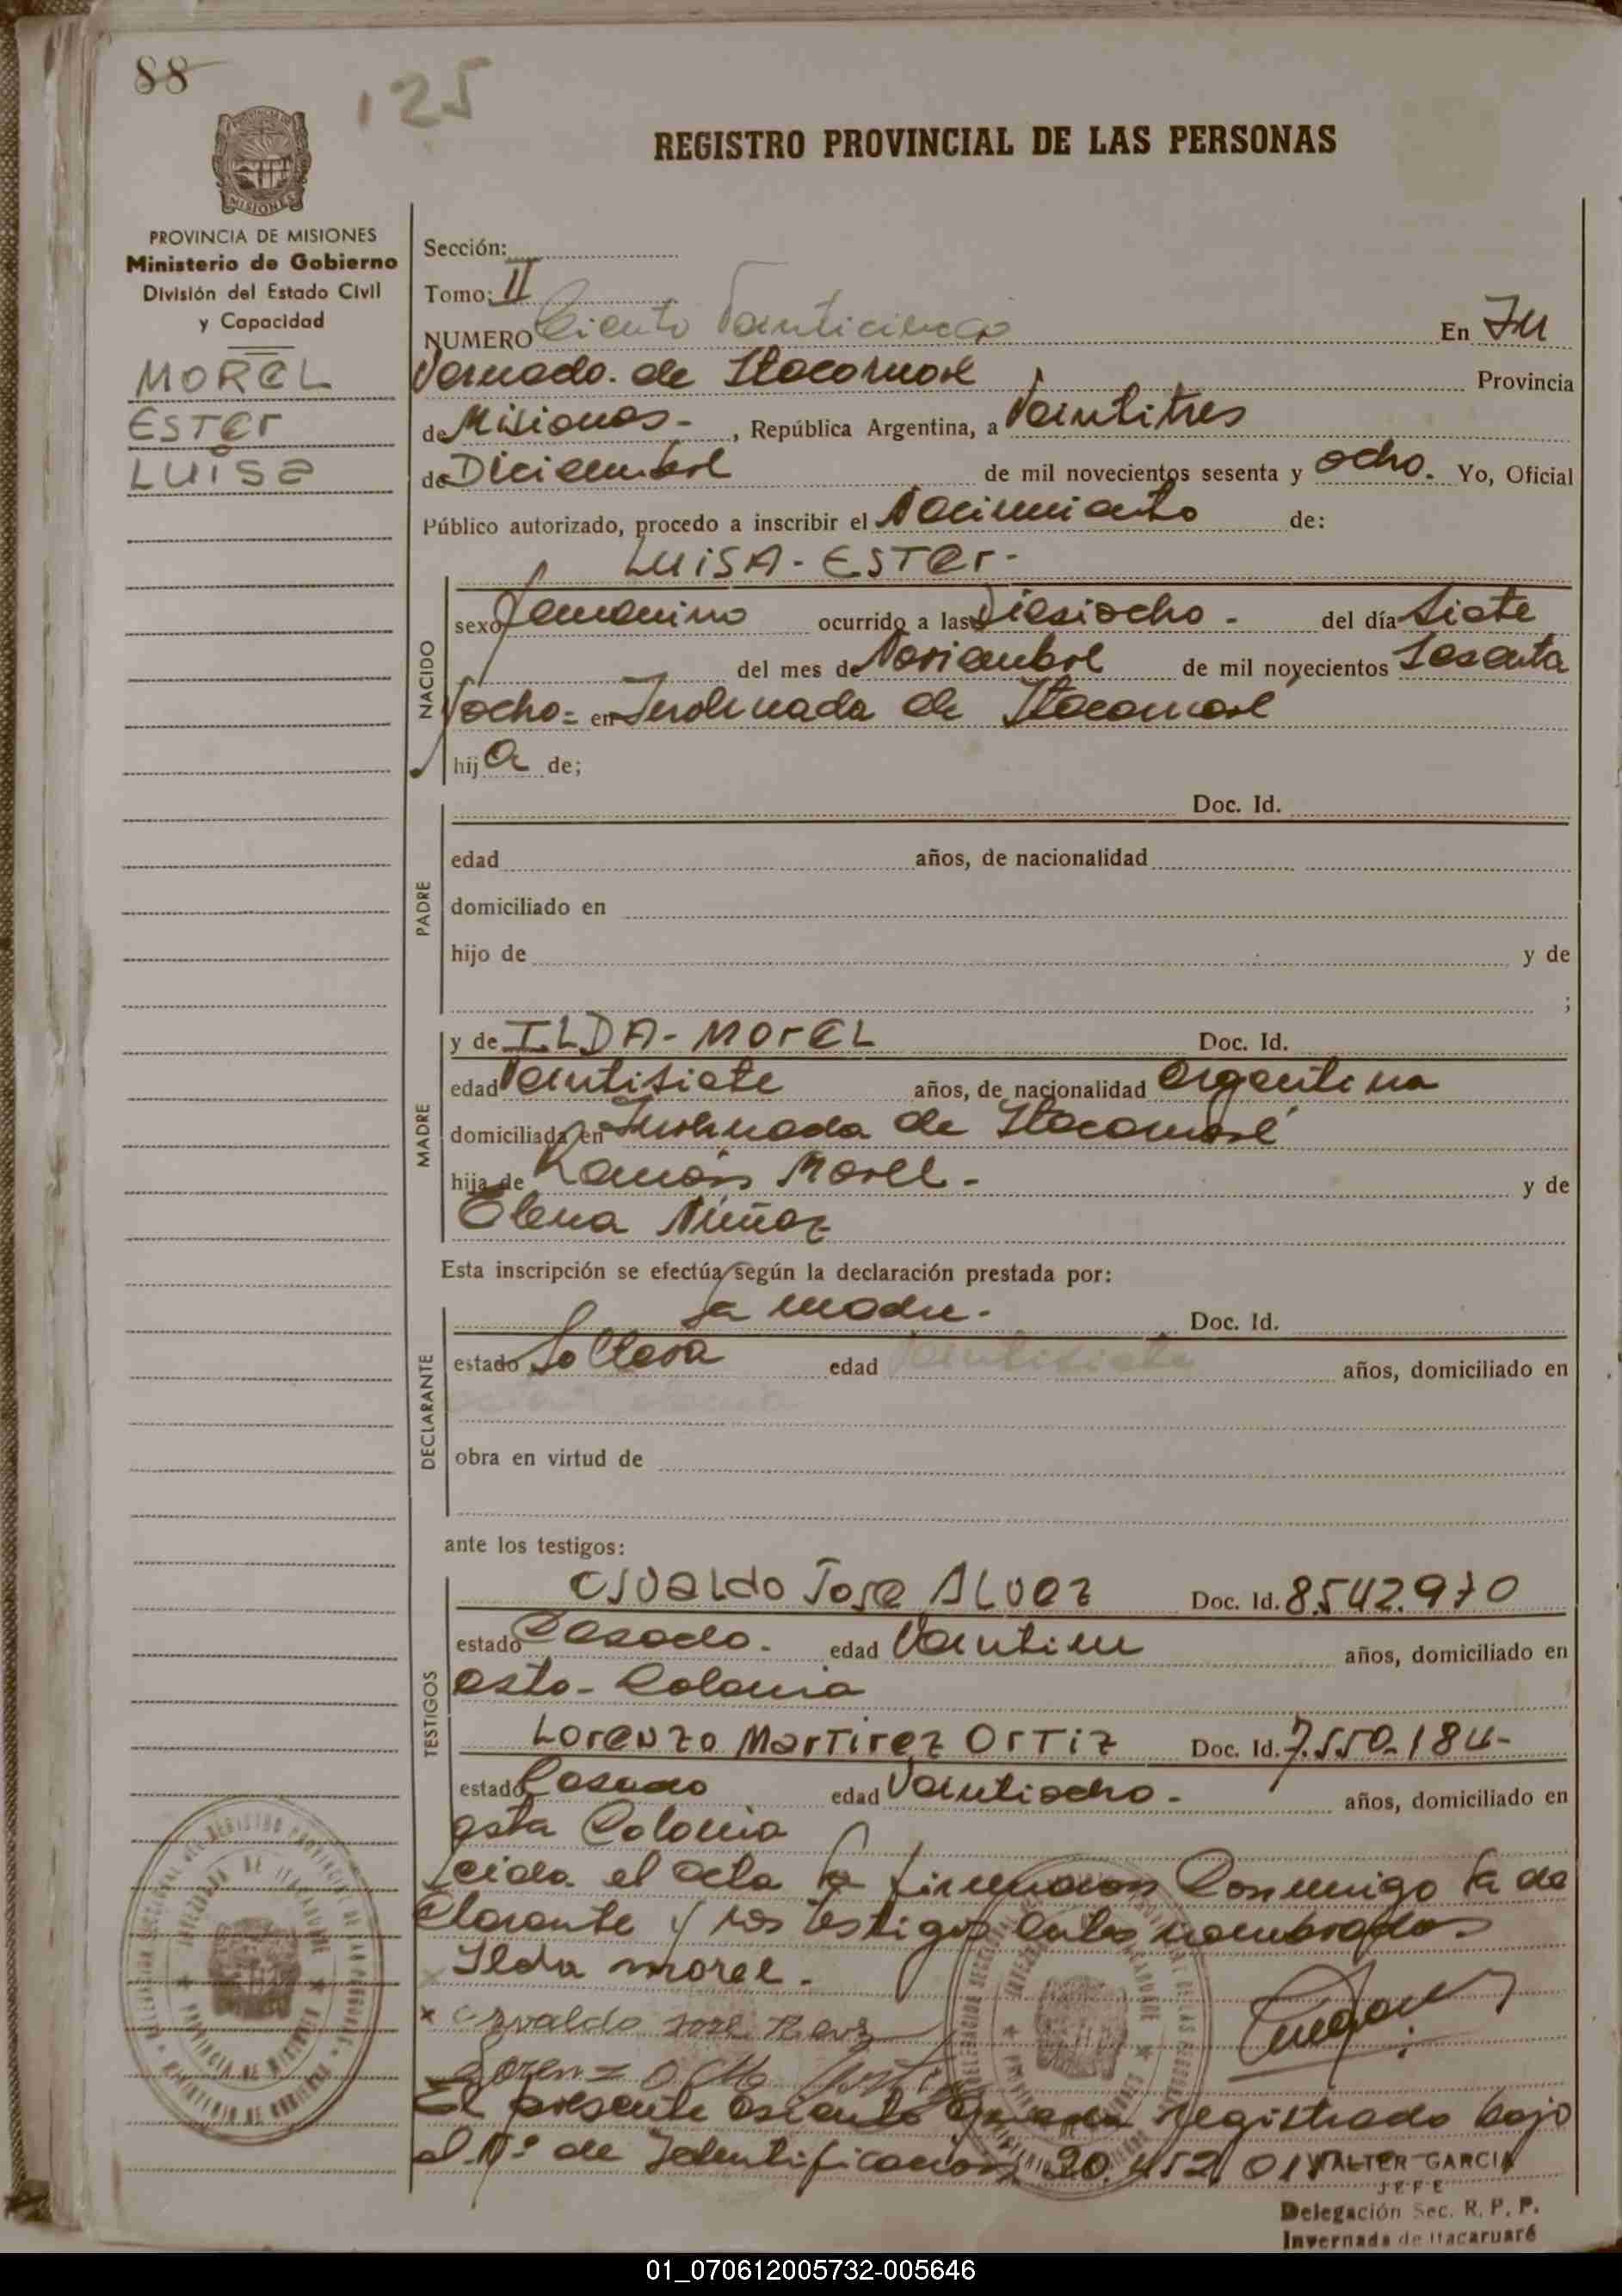 88
125
REGISTRO PROVINCIAL DE LAS PERSONAS
MISIONES
PROVINCIA DE MISIONES
Ministerio de Gobierno
División del Estado Civil
y Capacidad
MOREL
ESTER
LUISA
Sección:
Tomo: II
NUMERO Ciento Veinticinco En In
vernada de Itacaruaré Provincia
de Misiones - , República Argentina, a Veintitres
de Diciembre de mil novecientos sesenta y ocho. Yo, Oficial
Público autorizado, procedo a inscribir el Nacimiento de:
LUISA - ESTER -
NACIDO
sexo Femenino ocurrido a las Diesiocho - del día Siete
del mes de Noviembre de mil novecientos Sesenta
y ocho = en Invernada de Itacaruaré
hij a de;
PADRE
Doc. Id.
edad años, de nacionalidad
domiciliado en
hijo de y de
;
MADRE
y de ILDA - MOREL Doc. Id.
edad Veintisiete años, de nacionalidad Argentina
domiciliada en Invernada de Itacaruaré
hija de Ramón Morel - y de
Elena Núñez
Esta inscripción se efectúa según la declaración prestada por:
DECLARANTE
La madre - Doc. Id.
estado Soltera edad Veintisiete años, domiciliado en
obra en virtud de
ante los testigos:
TESTIGOS
OSVALDO JOSE ALVEZ Doc. Id. 8.542.970
estado Casado. edad Veintiun años, domiciliado en
esta - Colonia
LORENZO MARTIREZ ORTIZ Doc. Id. 7.550.184-
estado Casado edad Veintiocho - años, domiciliado en
esta Colonia
Leida el acta la firmaron Conmigo la de
clarante y los testigos antes nombrados
Ilda morel.
x Osvaldo Jose
Lorenzo
El presente asiento queda registrado bajo
el Nº de Identificacion 20.452.01
WALTER GARCIA
JEFE
Delegación Sec. R. P. P.
Invernada de Itacaruaré
01_070612005732-005646